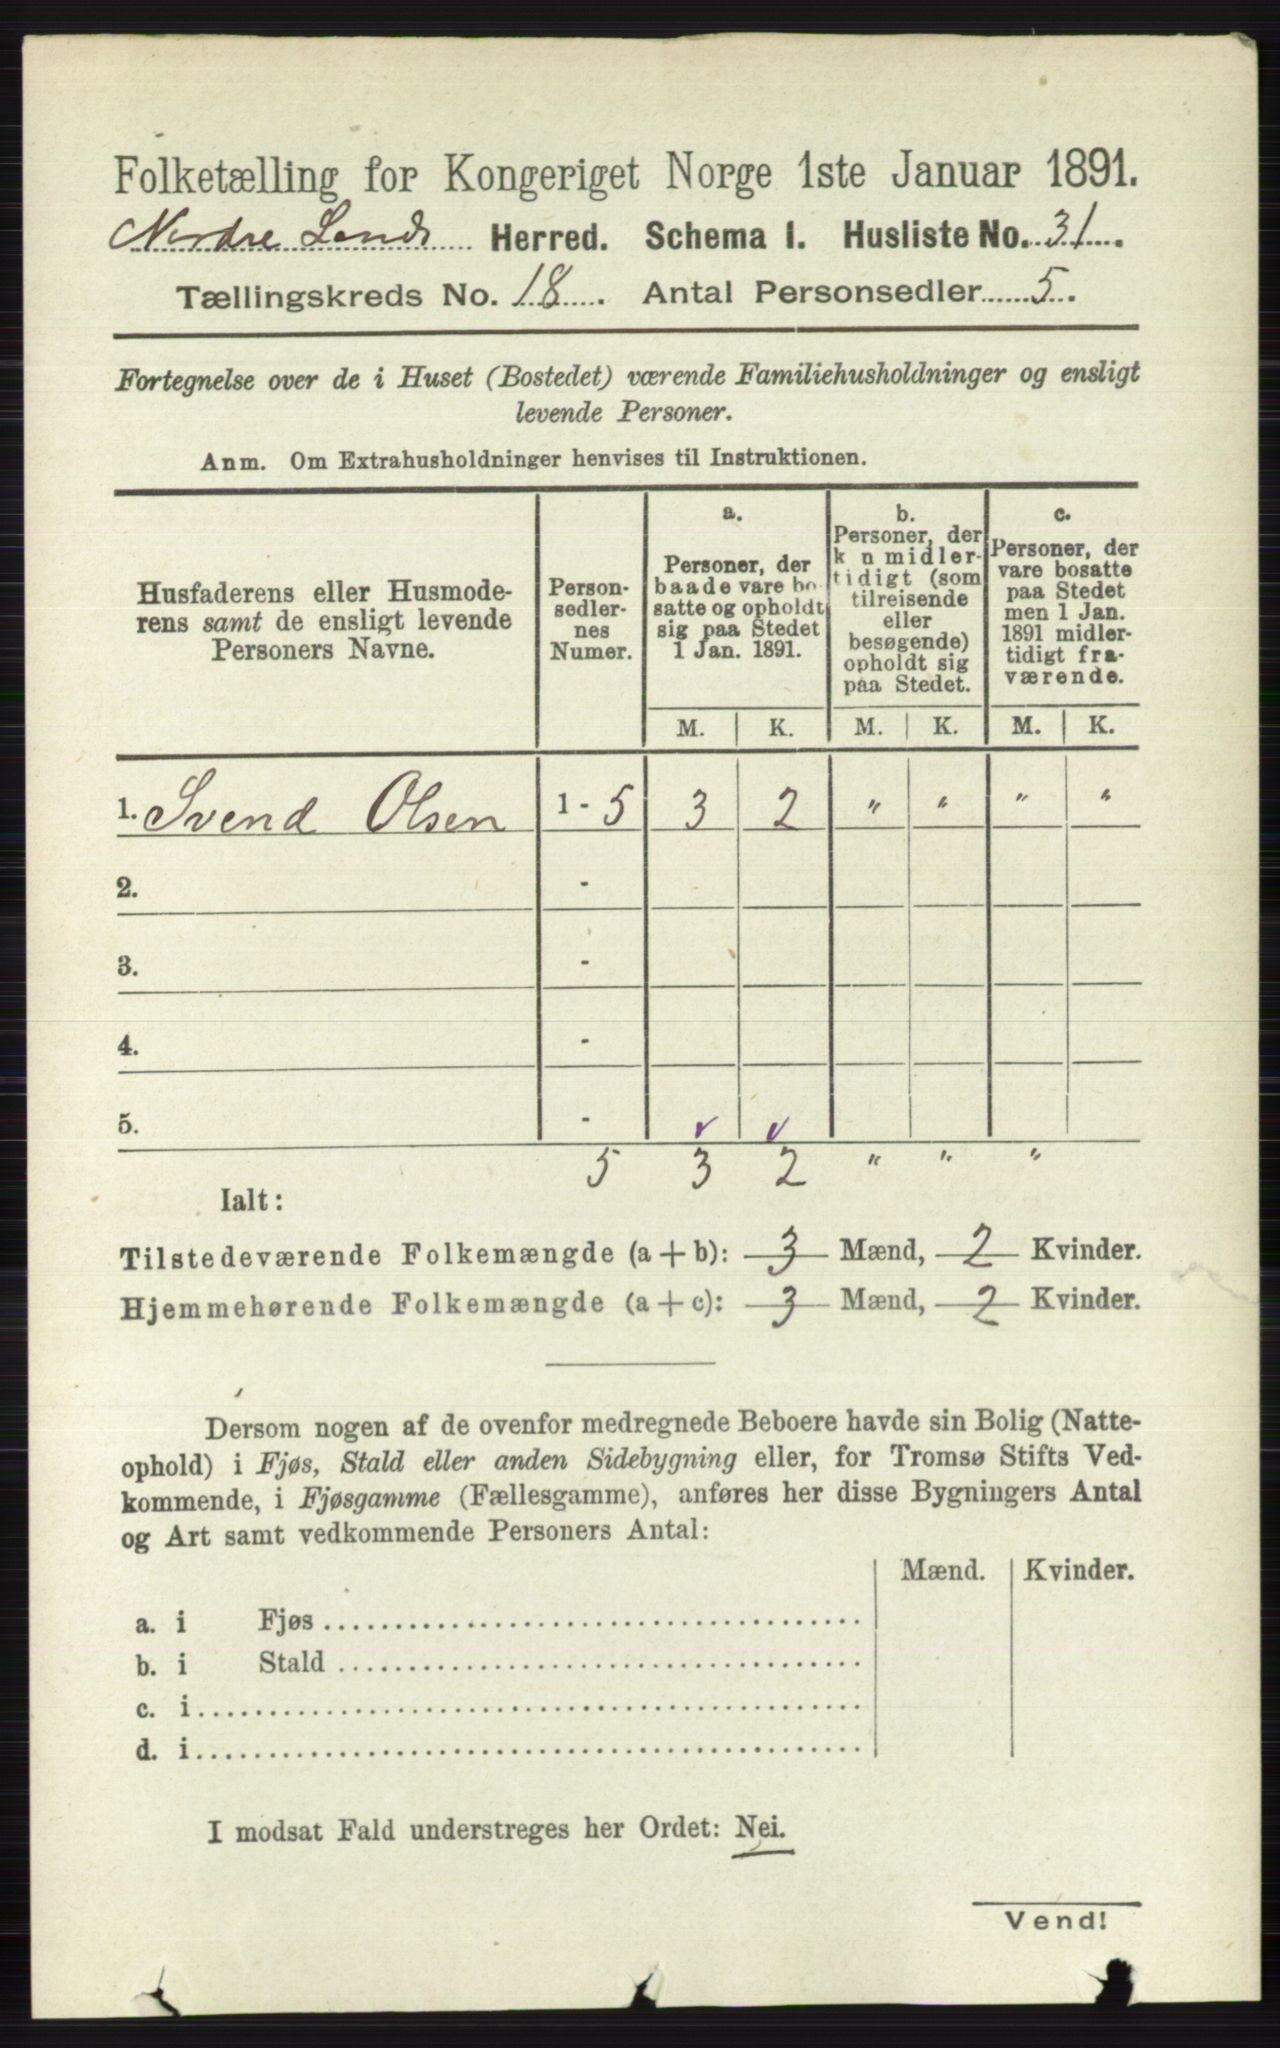 Folketælling for Kongeriget Norge 1ste Januar 1891.
Nordre Lands Herred. Schema I. Husliste No. 31.
Tællingskreds No. 18. Antal Personsedler 5.
Fortegnelse over de i Huset (Bostedet) værende Familiehusholdninger og ensligt
levende Personer.
Anm. Om Extrahusholdninger henvises til Instruktionen.
Husfaderens eller Husmode-
rens samt de ensligt levende
Personers Navne.
Person-
sedler-
nes
Numer.
a.
Personer, der
baade vare bo-
satte og opholdt
sig paa Stedet
1 Jan. 1891.
b.
Personer, der
k n midler-
tidigt (som
tilreisende
eller
besøgende)
opholdt sig
paa Stedet.
c.
Personer, der
vare bosatte
paa Stedet
men 1 Jan.
1891 midler-
tidigt fra-
værende.
M. K. M. K. M. K.
1. Svend Olsen 1 - 5 3 2 " " " "
2. -
3. -
4. -
5. -
5 3 2 " " "
Ialt:
Tilstedeværende Folkemængde (a + b): 3 Mænd, 2 Kvinder.
Hjemmehørende Folkemængde (a + c): 3 Mænd, 2 Kvinder.
Dersom nogen af de ovenfor medregnede Beboere havde sin Bolig (Natte-
ophold) i Fjøs, Stald eller anden Sidebygning eller, for Tromsø Stifts Ved-
kommende, i Fjøsgamme (Fællesgamme), anføres her disse Bygningers Antal
og Art samt vedkommende Personers Antal:
Mænd. Kvinder.
a. i Fjøs
b. i Stald
c. i
d. i
I modsat Fald understreges her Ordet: Nei.
Vend!